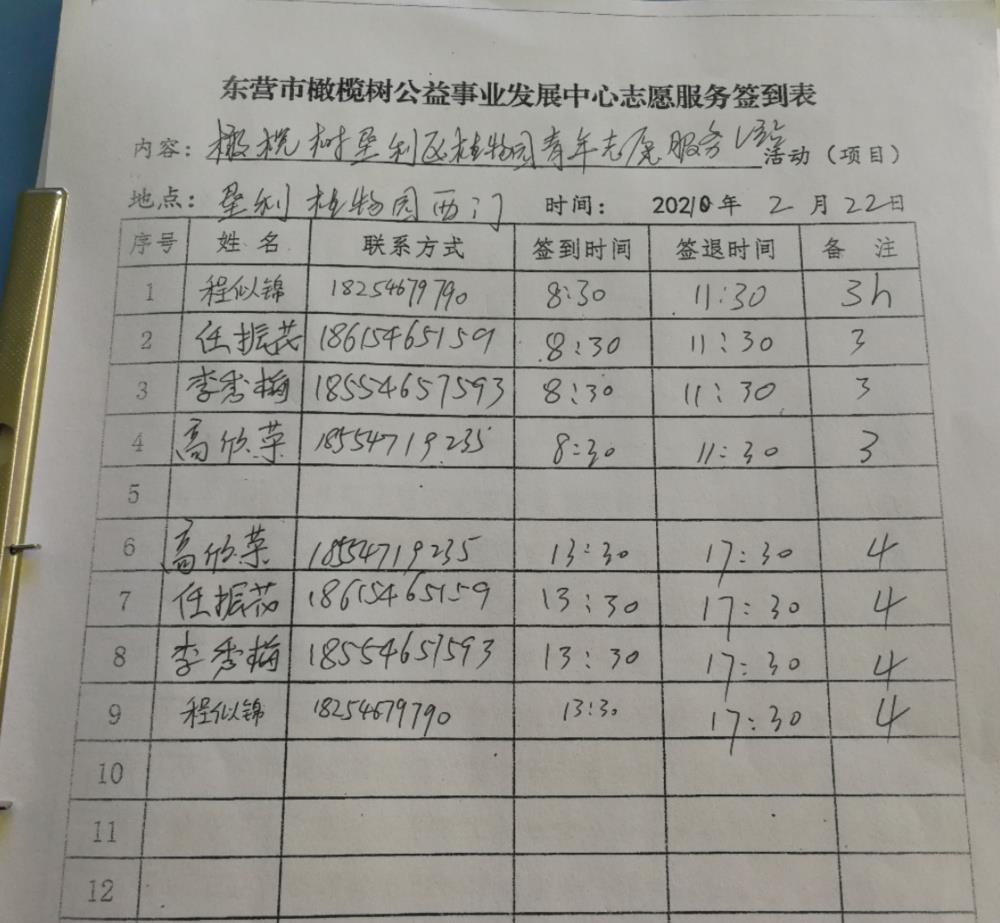 东营市橄榄树公益事业发展中心志愿服务签到表
内容：橄榄树垦利区植物园青年志愿服务 活动（项目）
地点：垦利植物园西门 时间： 年 2 月 22 日
序号 姓名 联系方式 签到时间 签退时间 备注
1 程似锦 18254679790 8:30 11:30 3h
2 任振芸 18615465159 8:30 11:30 3
3 李秀梅 18554657593 8:30 11:30 3
4 高欣荣 18554719235 8:30 11:30 3
5
6 高欣荣 18554719235 13:30 17:30 4
7 任振芸 18615465159 13:30 17:30 4
8 李秀梅 18554657593 13:30 17:30 4
9 程似锦 18254679790 13:30 17:30 4
10
11
12